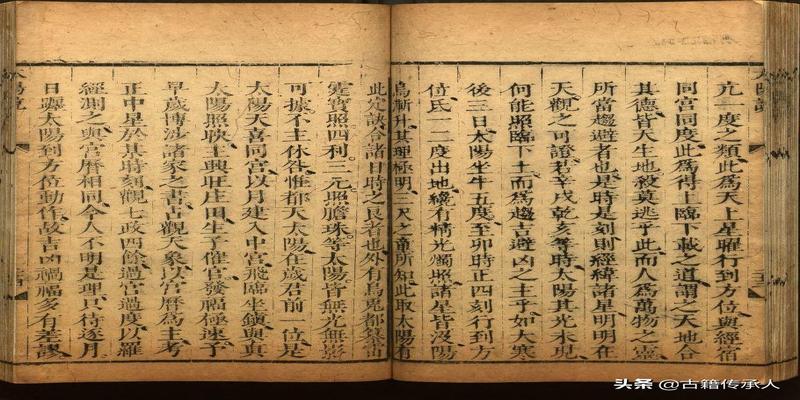 亢一度之類此爲天上星曜行到方位與經宿
同宮同度此爲得上臨下載之道謂之天地合
其德皆天生地殺莫逃乎此而人爲萬物之靈
所當趨避者也是時是刻則經緯諸星明明在
天觀之可證若辛戌乾亥等時太陽其光未現
何能照臨下土而爲趨吉避凶之主乎如大寒
後三日太陽坐牛五度至卯時正四刻行到方
位氐一二度出地纔有精光燭照諸星皆沒陽
烏漸升其理極明三尺之童所知此取太陽有
此定訣合諸日時之良者也外有烏兔都纂雷
霆寳照四利三元照膽珠等太陽皆無光無影
可據不主休咎惟都天太陽在歲君前一位是
太陽天喜同宮以月建入中宮飛臨坐鎮與真
太陽照映主興旺庄田生子催官發福極速予
早歲博涉諸家之書占觀天象以官曆爲主考
正中星於某時刻觀七政四餘過宮過度以羅
經測之與官曆相同今人不明是理只待逐月
日驅太陽到方位動作故吉凶禍福多有差謬
太陽說
头条 @古籍传承人